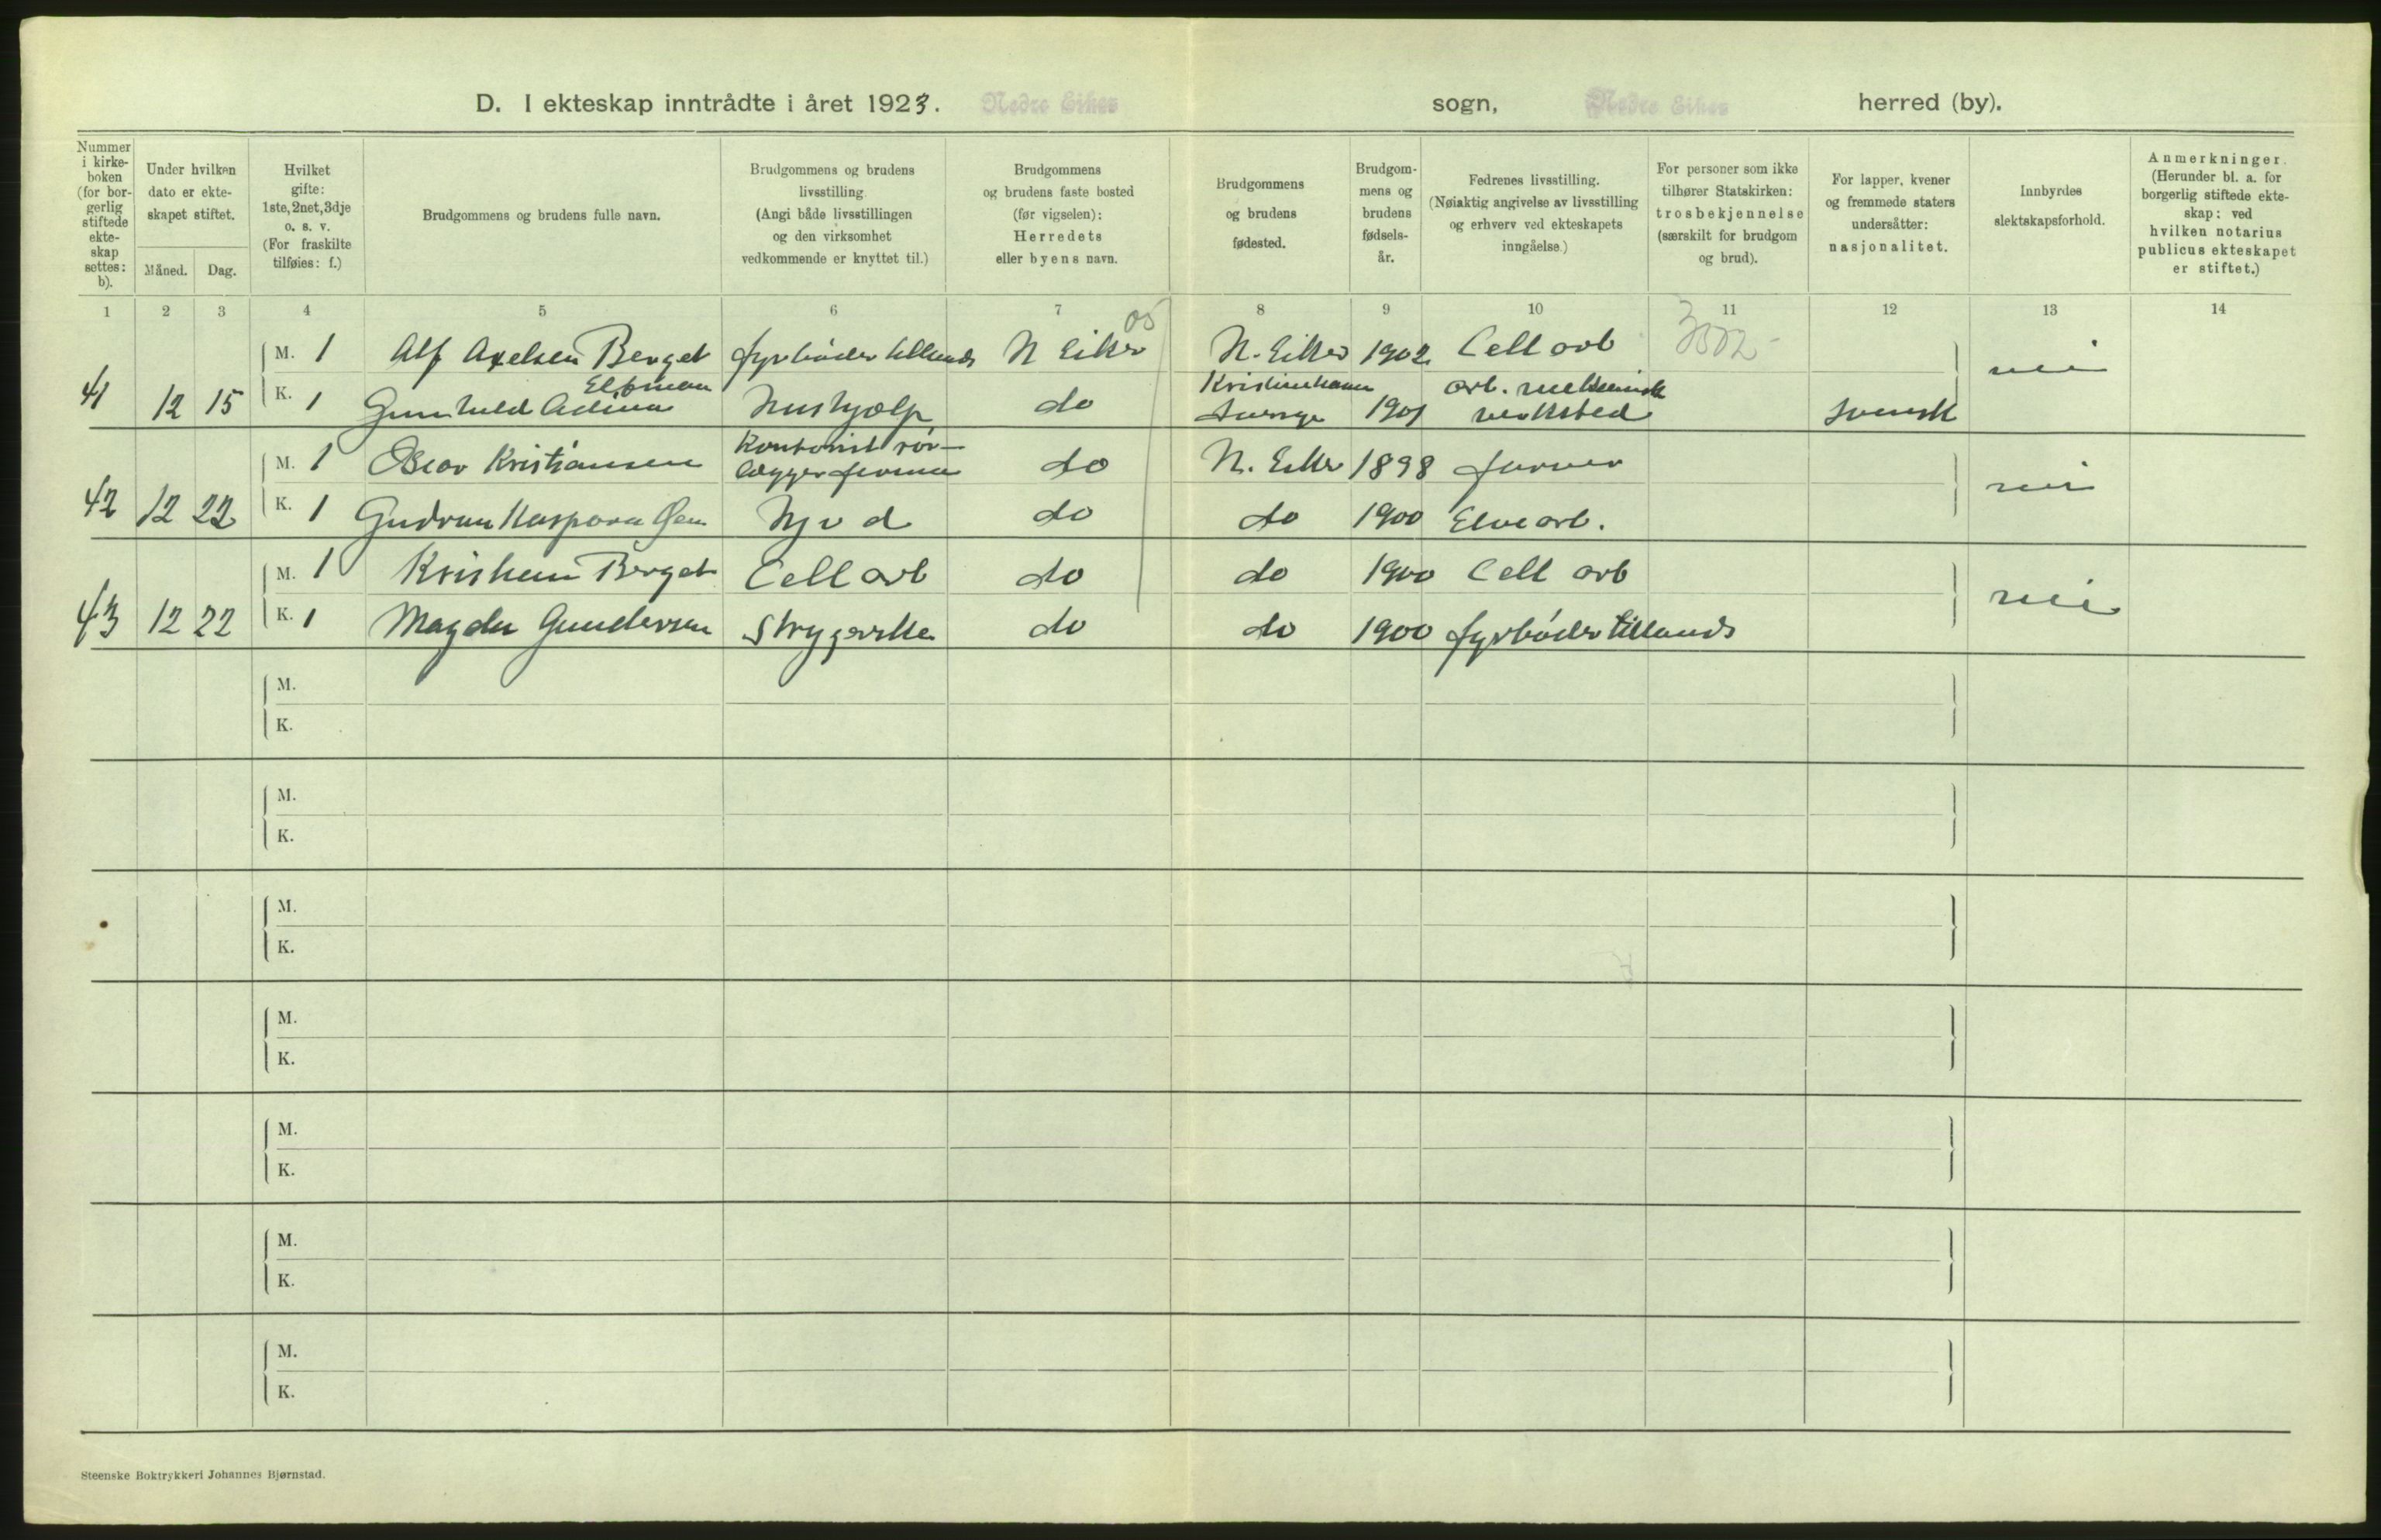 D. I ekteskap inntrådte i året 1923. Nedre Eiker sogn, Nedre Eiker herred (by).
Nummer i kirke-boken (for bor-gerlig stiftede ekte-skap settes: b).
Under hvilken dato er ekte-skapet stiftet.
Måned. Dag.
Hvilket gifte: 1ste, 2net, 3dje o. s. v. (For fraskilte tilføies: f.)
Brudgommens og brudens fulle navn.
Brudgommens og brudens livsstilling. (Angi både livsstillingen og den virksomhet vedkommende er knyttet til.)
Brudgommens og brudens faste bosted (før vigselen): Herredets eller byens navn.
Brudgommens og brudens fødested.
Brudgom-mens og brudens fødsels-år.
Fedrenes livsstilling. (Nøiaktig angivelse av livsstilling og erhverv ved ekteskapets inngåelse.)
For personer som ikke tilhører Statskirken: trosbekjennelse (særskilt for brudgom og brud).
For lapper, kvener og fremmede staters undersåtter: nasjonalitet.
Innbyrdes slektskapsforhold.
Anmerkninger. (Herunder bl. a. for borgerlig stiftede ekte-skap: ved hvilken notarius publicus ekteskapet er stiftet.)
1 2 3 4 5 6 7 8 9 10 11 12 13 14
05
M. 1 Alf Axelsen Berget fyrbøder N Eiker N. Eiker 1902 Cell arb
nei
41 12 15 K. 1 Gunhild Adina Elfman Hushjælp do Kristinehamn Sverige 1901 arb. mekanisk verksted svensk
M. 1 Oscar Kristiansen Kontorist rør-
lægger firma do N. Eiker 1898 farver
nei
42 12 22 K. 1 Gudrun Kaspara Hj v d do do 1900 Elvearb.
M. 1 Kristian Berget Cell arb do do 1900 Cell arb
nei
43 12 22 K. 1 Magda Gundersen Strygerske do do 1900 fyrbøder
M.
K.
M.
K.
M.
K.
M.
K.
M.
K.
M.
K.
M.
K.
Steenske Boktrykkeri Johannes Bjørnstad.